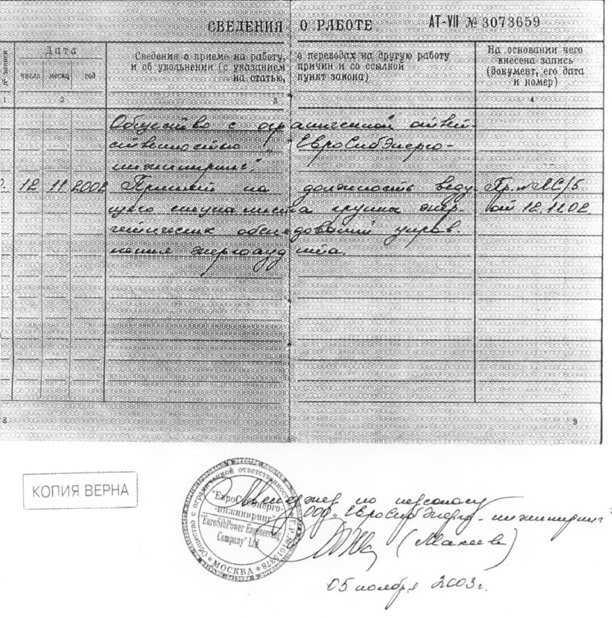 СВЕДЕНИЯ О РАБОТЕ
АТ-VII № 3073659
№ записи
Дата
число месяц год
Сведения о приеме на работу, о переводах на другую работу
и об увольнении (с указанием причин и со ссылкой
на статью, пункт закона)
На основании чего
внесена запись
(документ, его дата
и номер)
1 2 3 4
Общество с ограниченной ответ-
ственностью „ЕвроСибЭнерго-
инжиниринг".
12 11 2002 Принят на должность веду- Пр. № ЛС/5
щего специалиста группы энер- от 12.11.02.
гетических обследований управ-
ления энергоаудита.
8 9
КОПИЯ ВЕРНА
Общество с ограниченной ответственностью
"ЕвроСибЭнерго
-инжиниринг"
"EuroSibPower Engineering
Company" Ltd
МОСКВА
Менеджер по персоналу
ООО „ЕвроСибЭнерго-инжиниринг"
05 ноября 2003г.